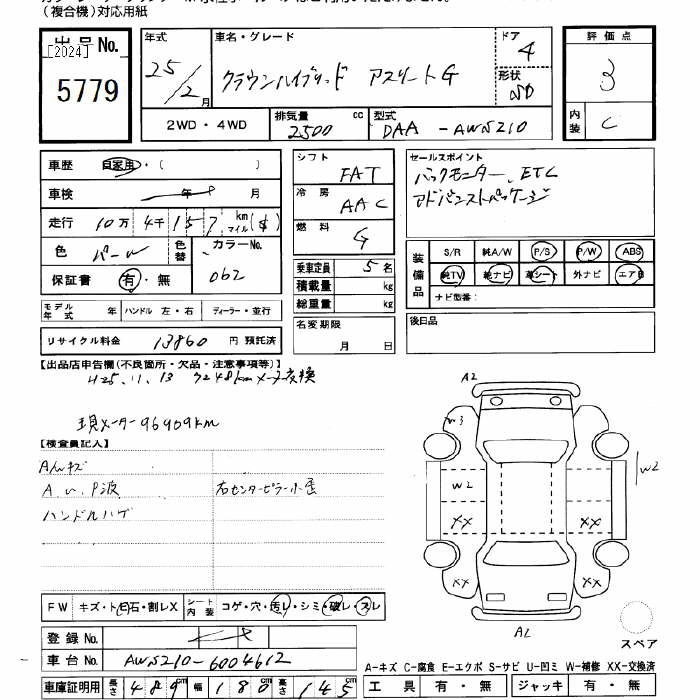 (複合機)対応用紙
出品No.
[2024]
5779
年式
25/2月
車名・グレード
クラウンハイブリッド アスリートG
ドア
4
形状
SD
評価点
3
内装
C
2WD・4WD
排気量 2500 cc
型式 DAA-AWS210
車歴 自家用・( )
車検 年 月
走行 10万4千157km マイル($)
色 パール 色替
カラーNo. 062
保証書 有・無
シフト FAT
冷房 AAC
燃料 G
乗車定員 5名
積載量 kg
総重量 kg
名変期限 月 日
セールスポイント
バックモニター、ETC
アドバンストパッケージ
装備品
S/R 純A/W P/S P/W ABS
純TV 純ナビ 革シート 外ナビ エアB
ナビ型番:
後日品
モデル年式 年 ハンドル 左・右 ディーラー・並行
リサイクル料金 13860 円 預託済
【出品店申告欄(不良箇所・欠品・注意事項等)】
H25.11.13 7248kmメーター交換
現メーター96909km
【検査員記入】
Aんキズ
AU、P波 右センターピラー小歪
ハンドルハゲ
FW キズ・ト(E)石・割レX
シート内装 コゲ・穴・汚レ・シミ・破レ・スレ
登録No.
車台No. AWS210-6004612
車庫証明用 長さ 489cm 幅 180cm 高さ 145cm
A2
W3
W2
W2
XX
XX
XX
XX
A2
スペア
A-キズ C-腐食 E-エクボ S-サビ U-凹ミ W-補修 XX-交換済
工具 有・無 ジャッキ 有・無